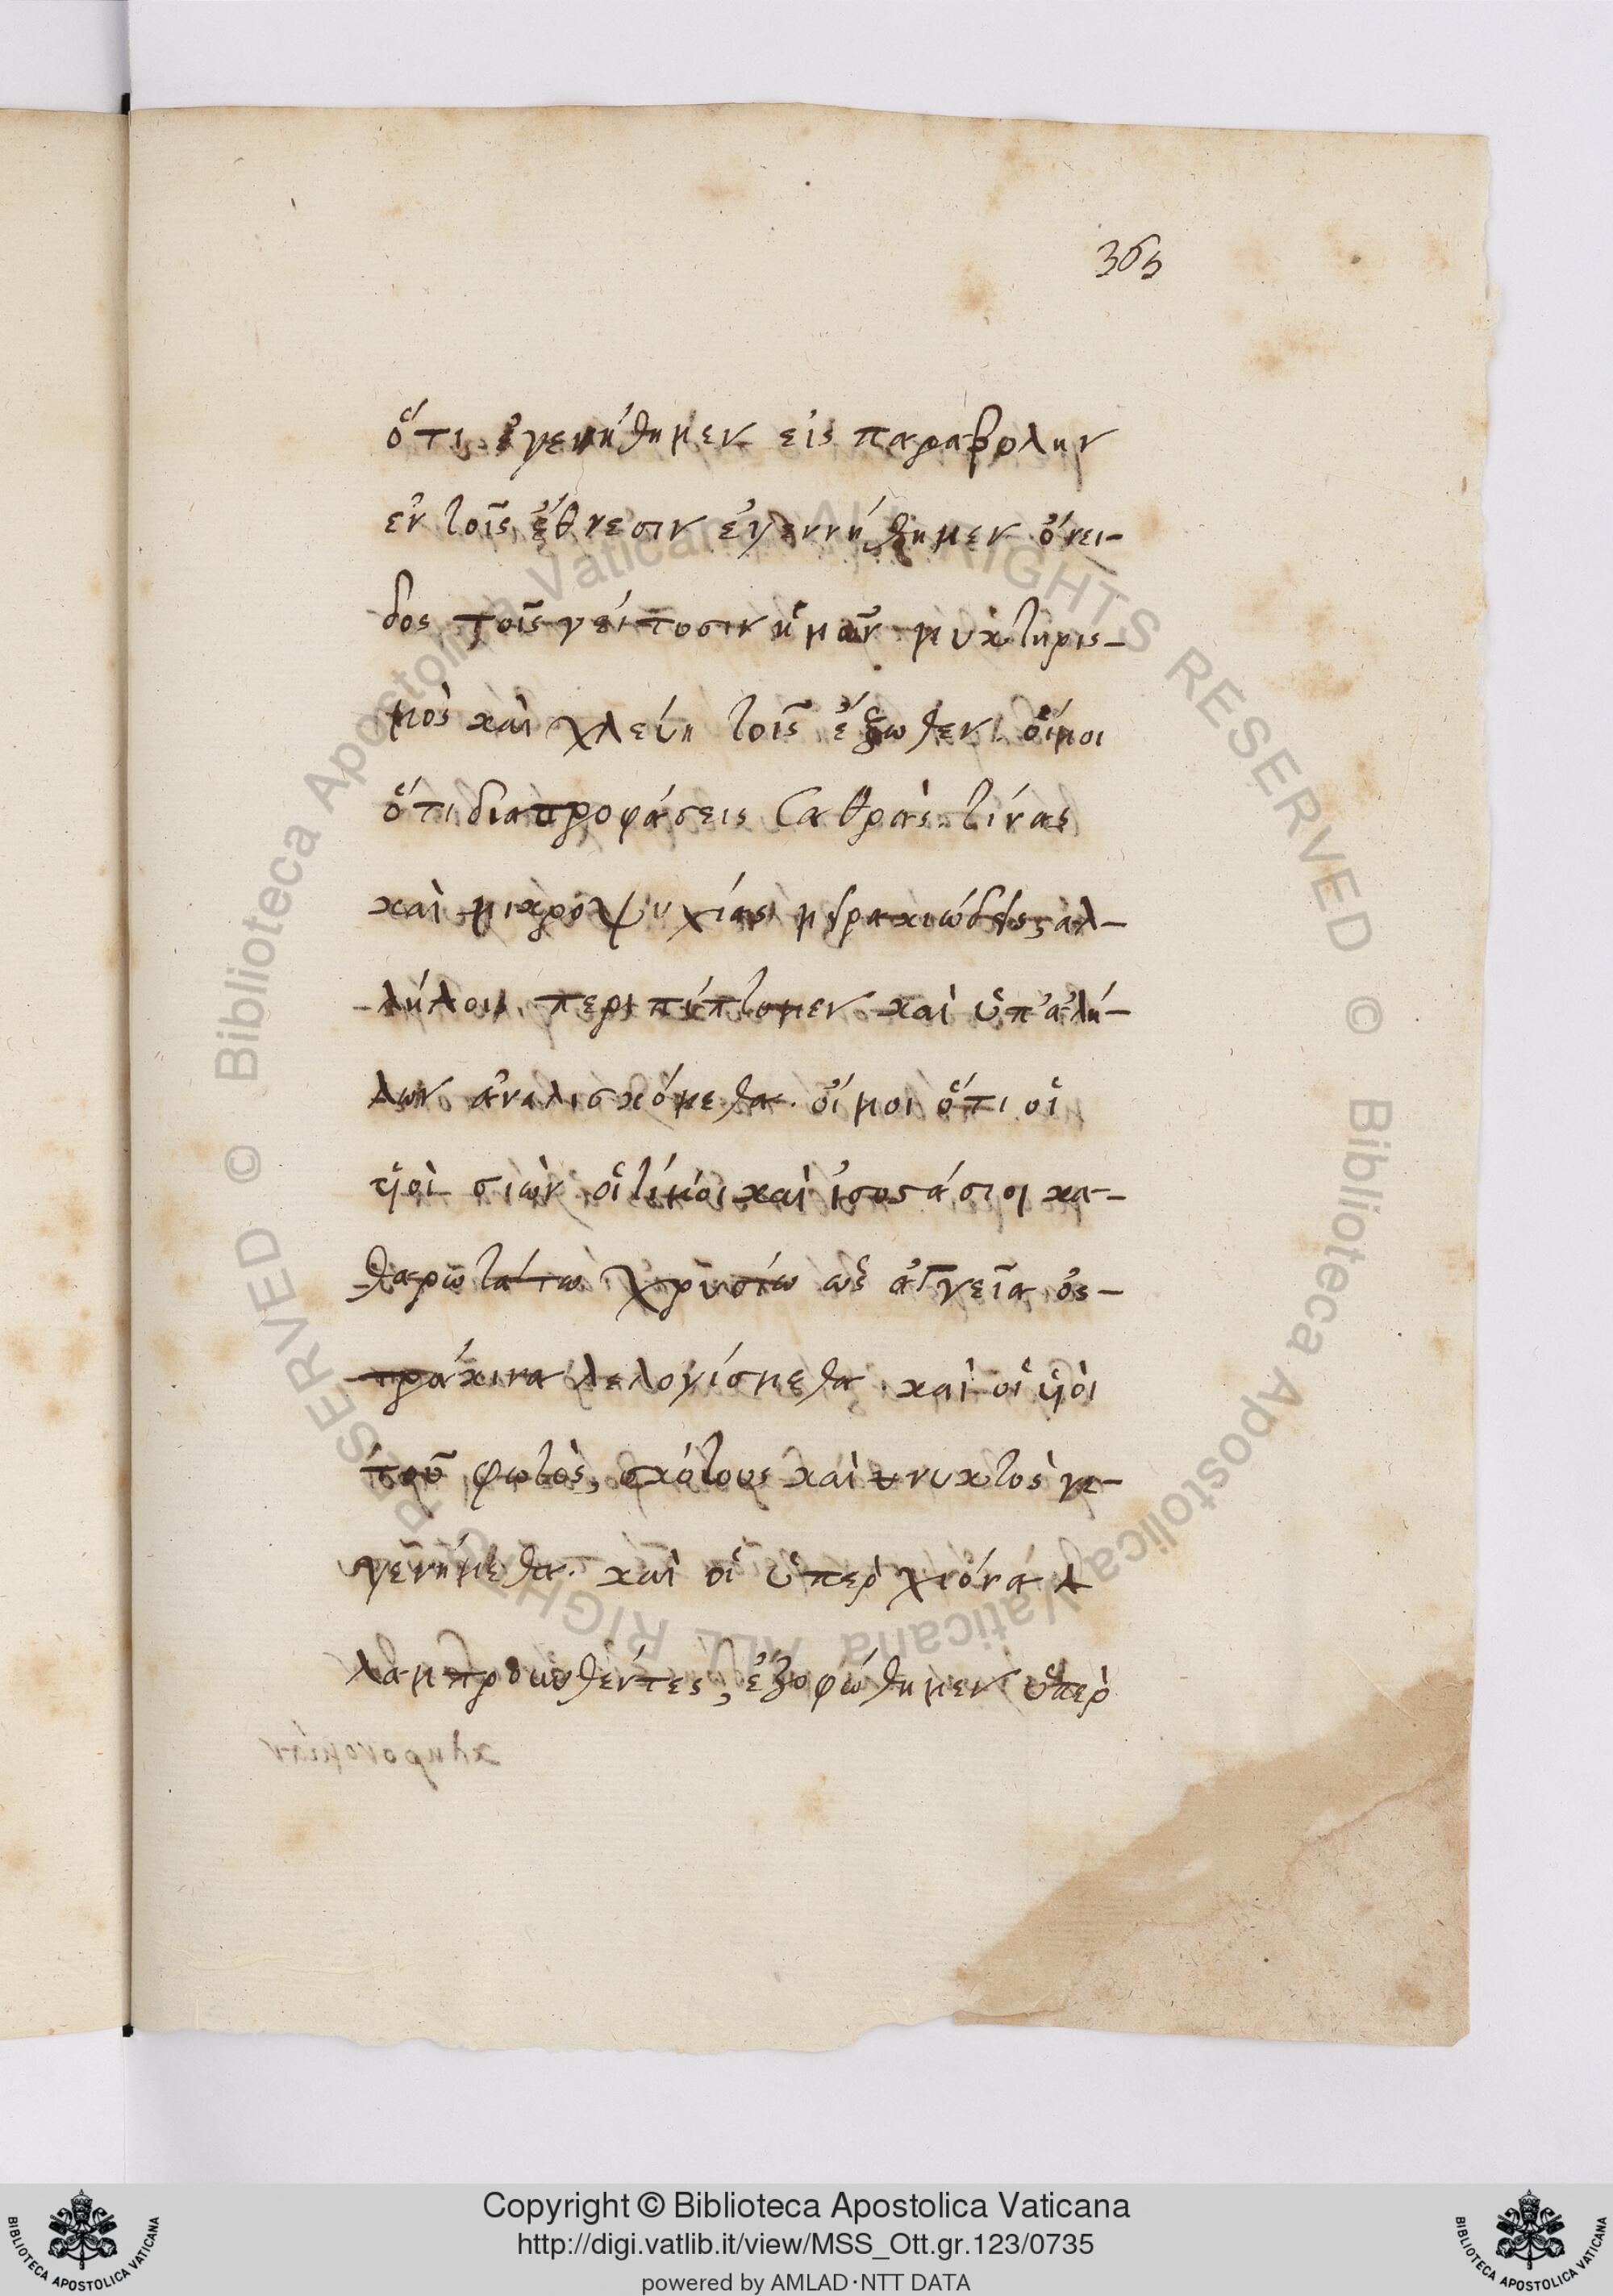 363
ὅτι ἐγενήθημεν εἰς παραβολην
ἐν τοῖς ἔθνεσιν ἐγεννήθημεν ὄνει-
δος τοῖς γείτοσιν ἡμῶν μυκτηρις-
μὸς καὶ χλεύη τοῖς ἔξωθεν. οἴμοι
ὅτι δια προφάσεις σαθρὰς τίνας
καὶ μικροψυχίας μειρακιώδεις ἀλ-
λήλοις περιπίπτομεν καὶ ὑπ' ἀλή-
λων ἀναλισκόμεθα. οἴμοι ὅτι οἱ
ὑϊοὶ σιὼν οἱ τίμιοι καὶ ἰσοστάσιοι κα-
θαρωτάτω χρυσίω ὡς ἀγγεῖα ὀσ-
τράκινα λελογίσμεθα. καὶ οἱ ὑϊοὶ
τοῦ φωτὸς, σκότους καὶ νυκτὸς γε-
γενήμεθα. καὶ οἱ ὑπερ χιόνα λ
λαμπρυνθέντες, ἐζοφώθημεν ὑπὲρ
κληρονομίαν
Copyright © Biblioteca Apostolica Vaticana
http://digi.vatlib.it/view/MSS_Ott.gr.123/0735
powered by AMLAD·NTT DATA
© Biblioteca Apostolica Vaticana ALL RIGHTS RESERVED © Biblioteca Apostolica Vaticana ALL RIGHTS RESERVED
BIBLIOTECA APOSTOLICA VATICANA
BIBLIOTECA APOSTOLICA VATICANA